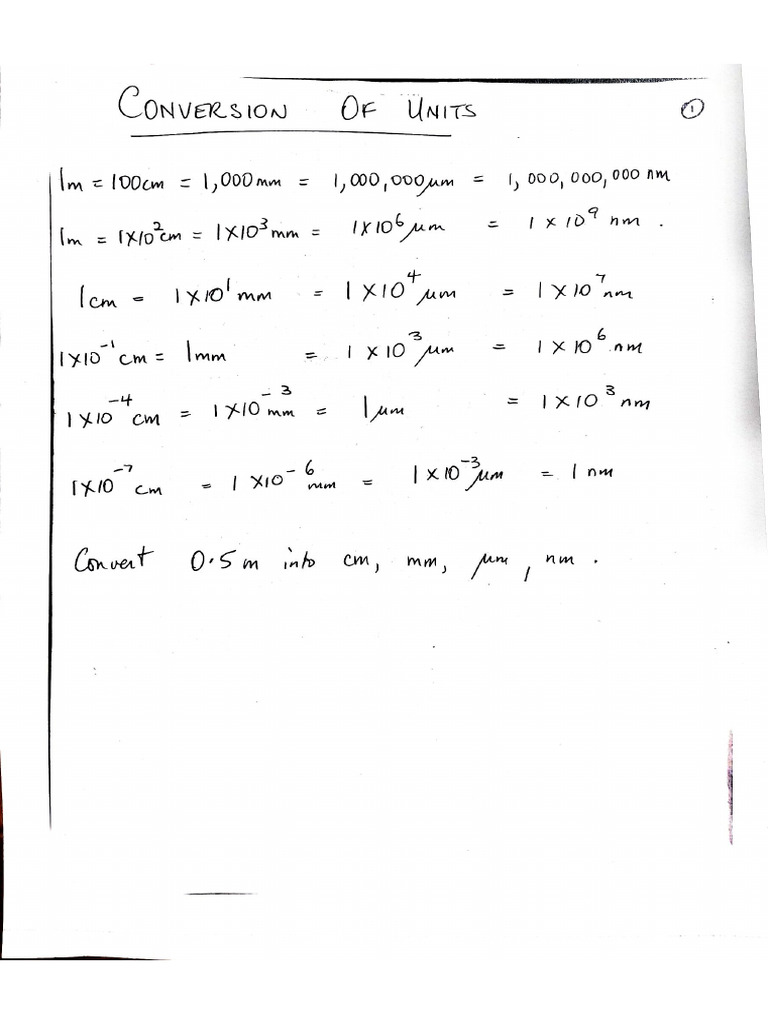 CONVERSION OF UNITS ①
1m = 100cm = 1,000mm = 1,000,000μm = 1,000,000,000 nm
1m = 1×10²cm = 1×10³mm = 1×10⁶μm = 1×10⁹ nm.
1cm = 1×10¹mm = 1×10⁴μm = 1×10⁷nm
1×10⁻¹cm = 1mm = 1×10³μm = 1×10⁶nm
1×10⁻⁴cm = 1×10⁻³mm = 1μm = 1×10³nm
1×10⁻⁷cm = 1×10⁻⁶mm = 1×10⁻³μm = 1nm
Convert 0.5m into cm, mm, μm, nm.